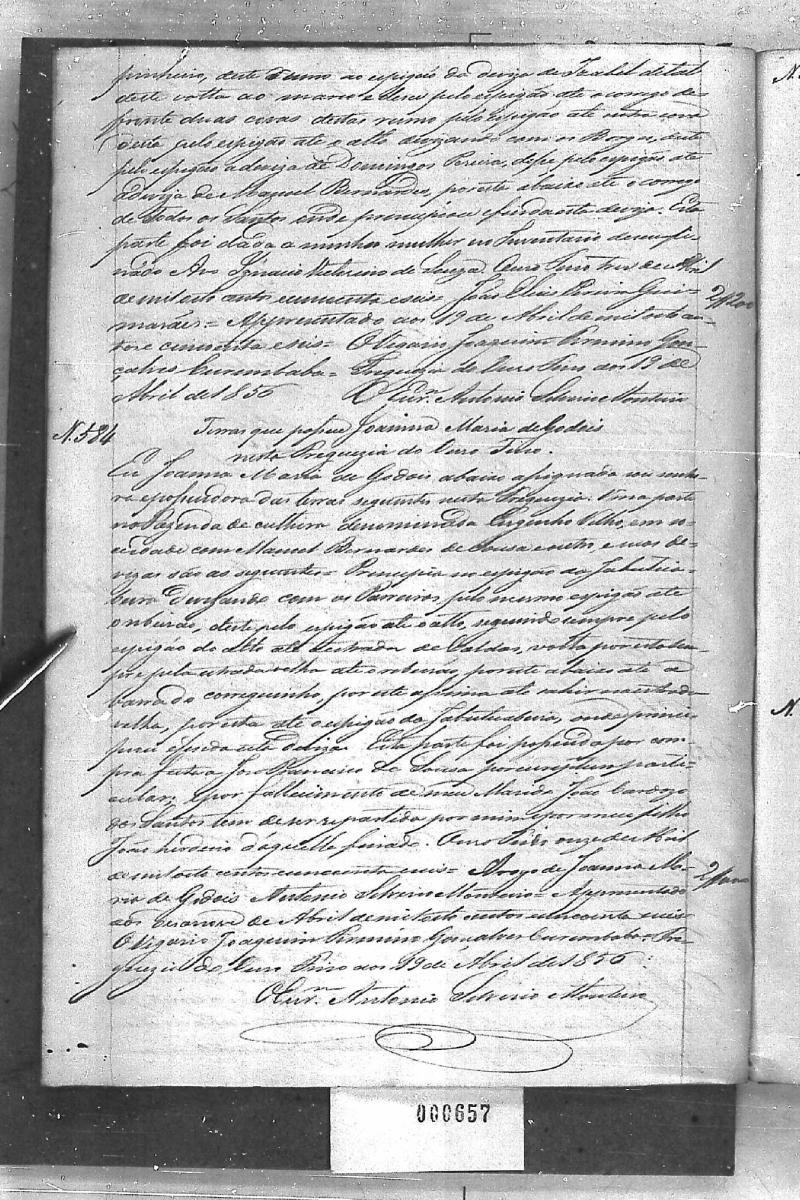 pinheiro, deste rumo ao espigão da deviza de Izabel de tal
deste volta ao marco e desce pelo espigão até o corrego de-
fronte duas covas destas rumo pelo espigão até outra cova
desta pelo espigão até o alto devizando com os Borges, deste
pelo espigão a deviza de Domingos Pereira, desse pelo espigão até
a deviza de Manuel Bernardes, por este abaixo até o corrego
de Todos os Santos onde principiou e finda esta deviza. Esta
parte foi dada a minha mulher no Inventario de seu fi-
nado Avo Ignacio de Souza. Ouro Fino tres de Abril
de mil oito centos cincoenta e seis = João Pereira Gui- 2$200
marães = Appresentado aos 19 de Abril de mil oito cen-
tos e cincoenta e seis = O Vigario Joaquim Firmino Gon-
çalves Curembaba = Freguezia do Ouro Fino aos 19 de
Abril de 1856 O Escrm Antonio Silverio Monteiro
N. 584 Terras que possue Joanna Maria de Godois
nesta Freguezia do Ouro Fino.
Eu Joanna Maria de Godois abaixo assignada sou senho-
ra e possuidora das terras seguintes nesta Freguezia: Uma parte
na Fazenda de cultura denominada Engenho Velho, em so-
ciedade com Manuel Bernardes de Sousa e outros, e suas de-
vizas são as seguintes = Principia no espigão da Jabutica-
beira devizando com os Barreiros, pelo mesmo espigão até
o ribeirão, deste pelo espigão até o alto, seguindo sempre pelo
espigão do alto até a estrada de Caldas, volta por esta
pela estrada velha até o ribeirão, por este abaixo até a
barra do correguinho, por este assima até sahir na estrada
velha, por esta até o espigão da Jabuticabeira, onde princi-
piou e finda esta deviza. Esta parte foi possuida por com-
pra feita a José Francisco de Sousa por um parti-
cular, e por fallecimento de meu Marido João Cardozo
dos Santos tem de ser repartida por mim e por meu filho
João herdeiro d'aquelle finado. Ouro Fino onze de Abril
de mil oito centos cincoenta e seis = Arogo de Joanna Ma-
ria de Godois Antonio Silverio Monteiro = Appresentado
aos dezanove de Abril de mil oito centos cincoenta e seis
O Vigario Joaquim Firmino Gonçalves Curembaba = Fre-
guezia do Ouro Fino aos 19 de Abril de 1856:
O Escrm Antonio Silverio Monteiro
000657